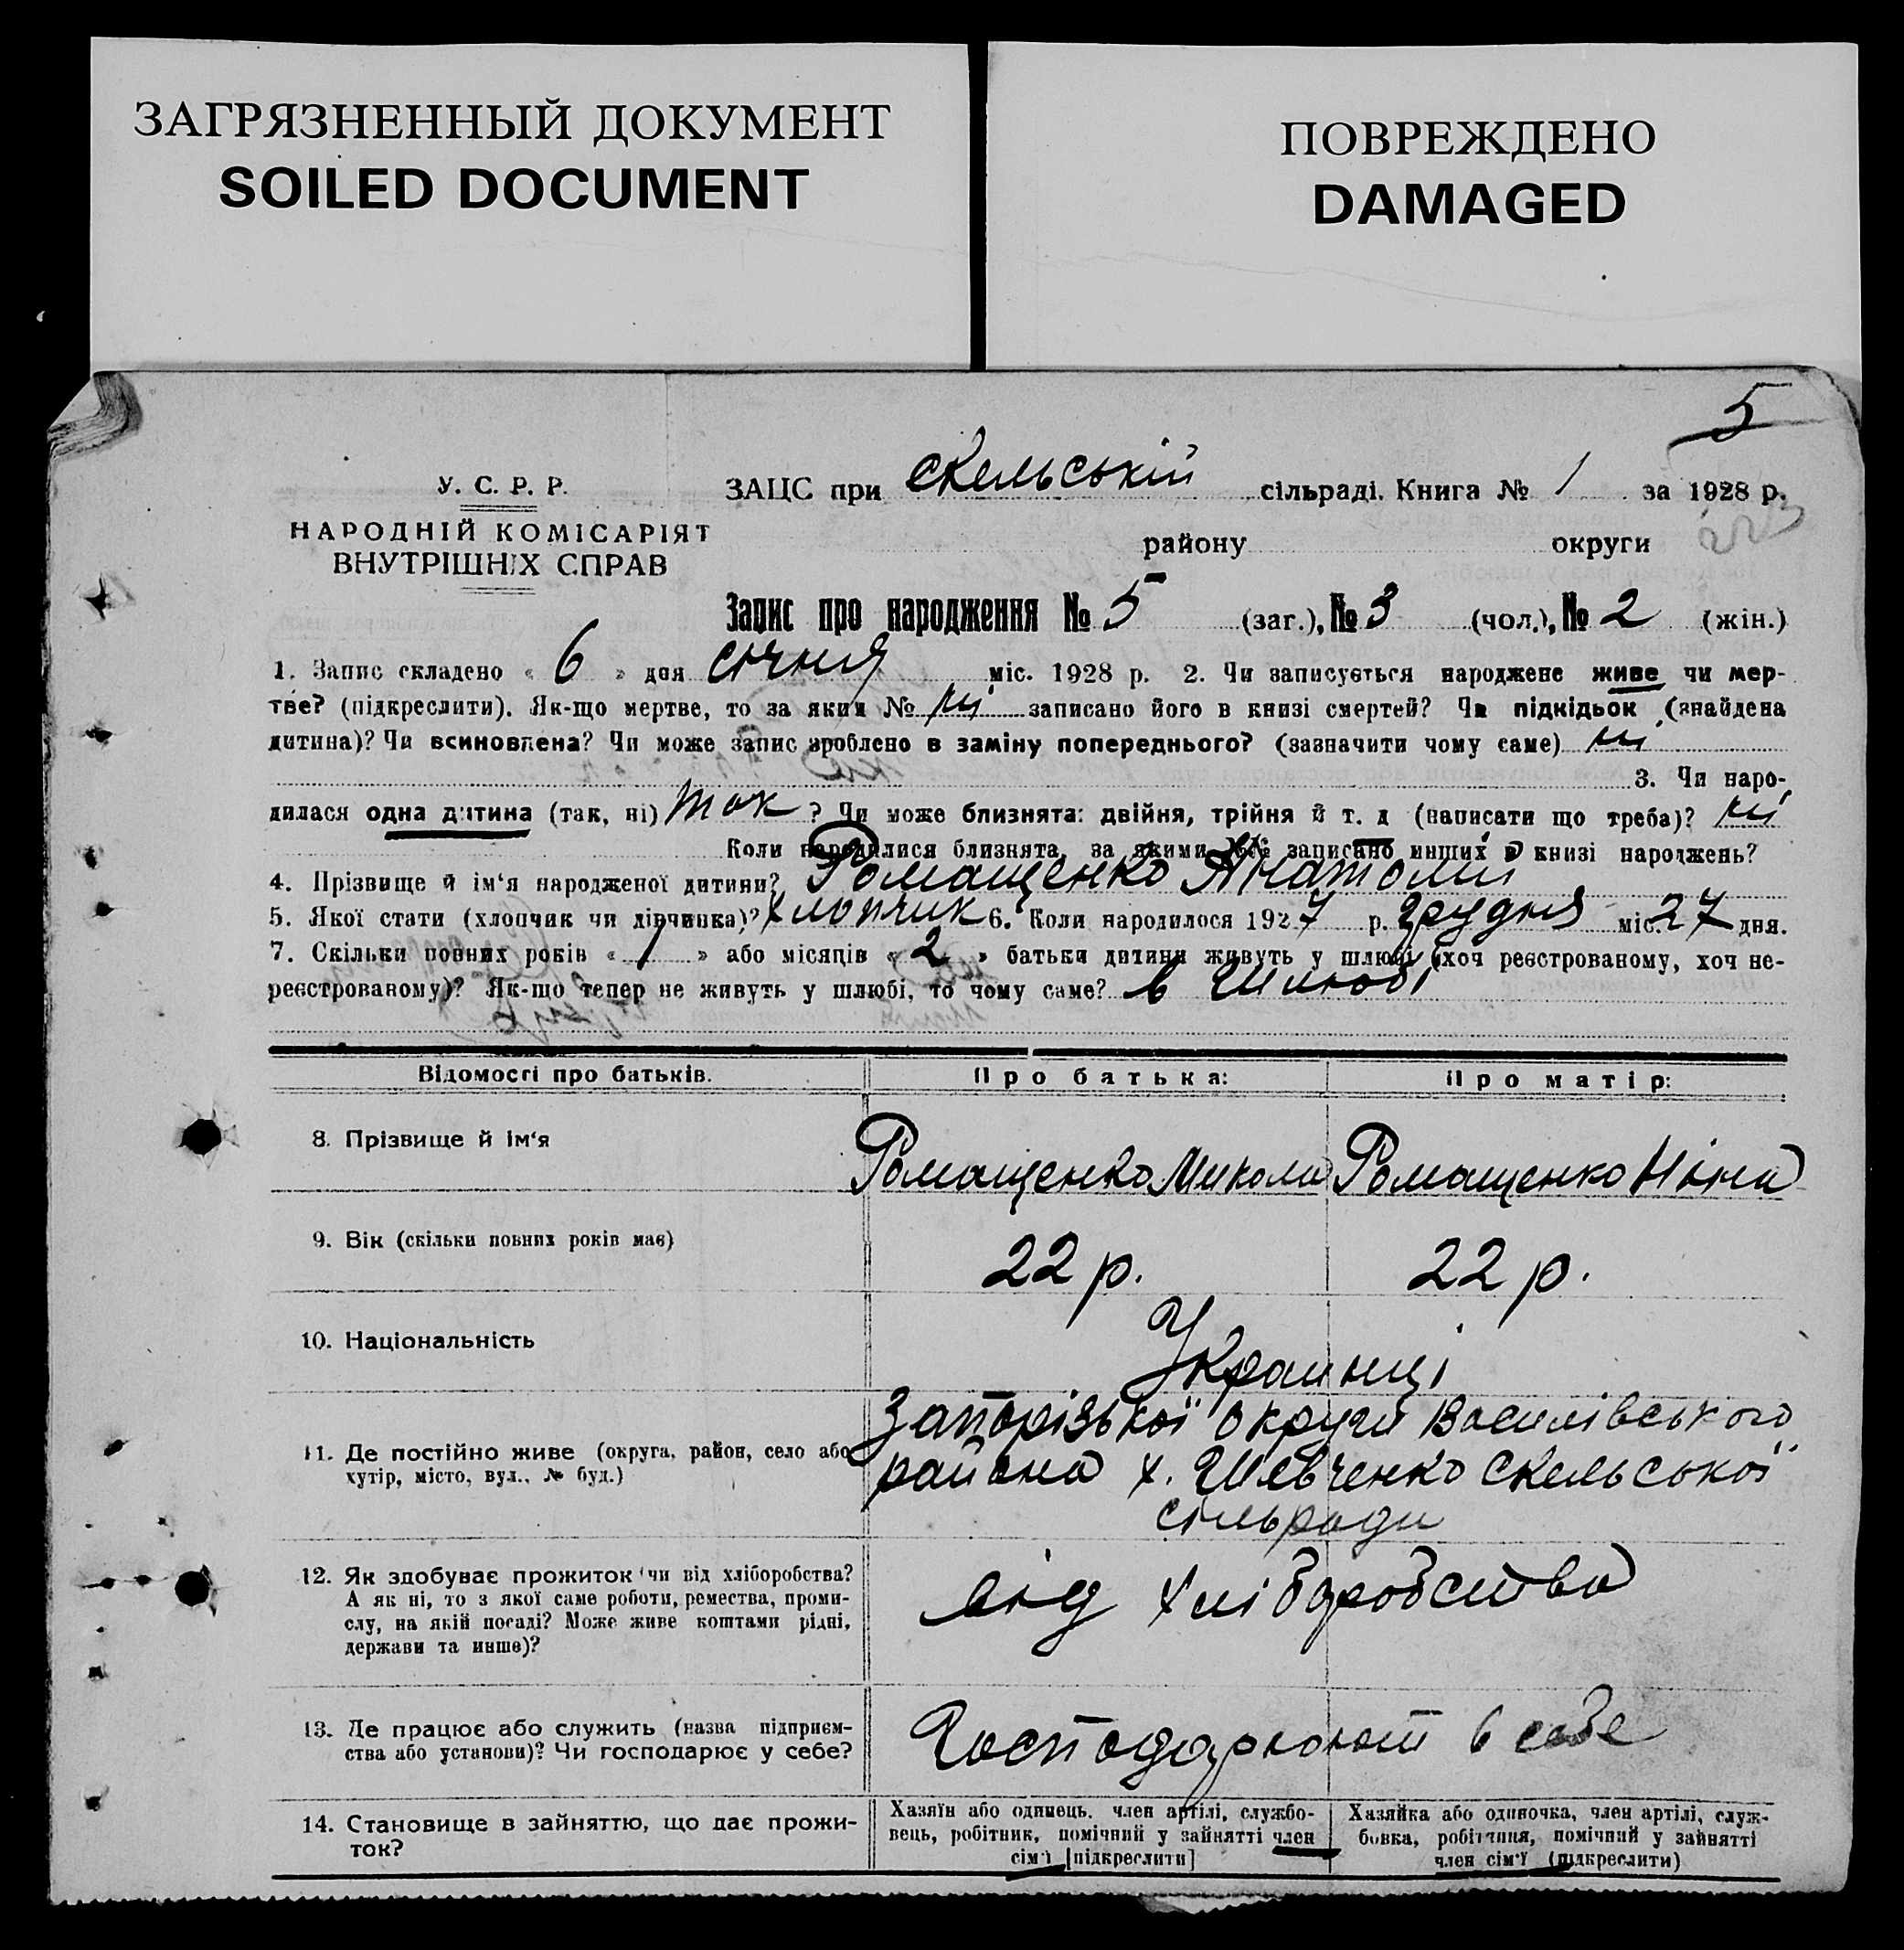 ЗАГРЯЗНЕННЫЙ ДОКУМЕНТ
SOILED DOCUMENT
ПОВРЕЖДЕНО
DAMAGED
5
У. С. Р. Р.
НАРОДНІЙ КОМІСАРІЯТ
ВНУТРІШНІХ СПРАВ
ЗАЦС при Скельській сільраді. Книга № 1 за 1928 р.
району округи
Запис про народження № 5 (заг.), № 3 (чол.), № 2 (жін.)
1. Запис складено « 6 » дня січня міс. 1928 р. 2. Чи записується народжене живе чи мер-
тве? (підкреслити). Як-що мертве, то за яким № ні записано його в книзі смертей? Чи підкідьок (знайдена
дитина)? Чи всиновлена? Чи може запис зроблено в заміну попереднього? (зазначити чому саме) ні
3. Чи наро-
дилася одна дитина (так, ні) так ? Чи може близнята: двійня, трійня й т. д (написати що треба)? ні
Коли народилися близнята, за якими №№ записано инших в книзі народжень?
4. Прізвище й ім‘я народженої дитини? Ромащенко Анатолій
5. Якої стати (хлопчик чи дівчинка)? Хлопчик 6. Коли народилося 1927 р. Грудня міс. 27 дня.
7. Скільки повних років « 1 » або місяців « 2 » батьки дитини живуть у шлюбі (хоч реєстрованому, хоч не-
реєстрованому)? Як-що тепер не живуть у шлюбі, то чому саме? в Шлюбі
Відомості про батьків. Про батька: Про матір:
8. Прізвище й ім‘я Ромащенко Микола Ромащенко Ніна
9. Вік (скільки повних років має) 22 р. 22 р.
10. Національність Украинці
11. Де постійно живе (округа, район, село або
хутір, місто, вул., № буд.)
Запорізької округи Василівського
района х. Шевченко Скельської
сільради
12. Як здобуває прожиток (чи від хліборобства?
А як ні, то з якої саме роботи, ремества, проми-
слу, на якій посаді? Може живе коштами рідні,
держави та инше)?
від хліборобства
13. Де працює або служить (назва підприєм-
ства або установи)? Чи господарює у себе?
Господарюют в себе
14. Становище в зайняттю, що дає прожи-
ток?
Хазяїн або одинець, член артілі, службо-
вець, робітник, помічний у зайнятті член
сім‘ї [підкреслити]
Хазяйка або одиночка, член артілі, служ-
бовка, робітниця, помічний у зайнятті
член сім‘ї (підкреслити)